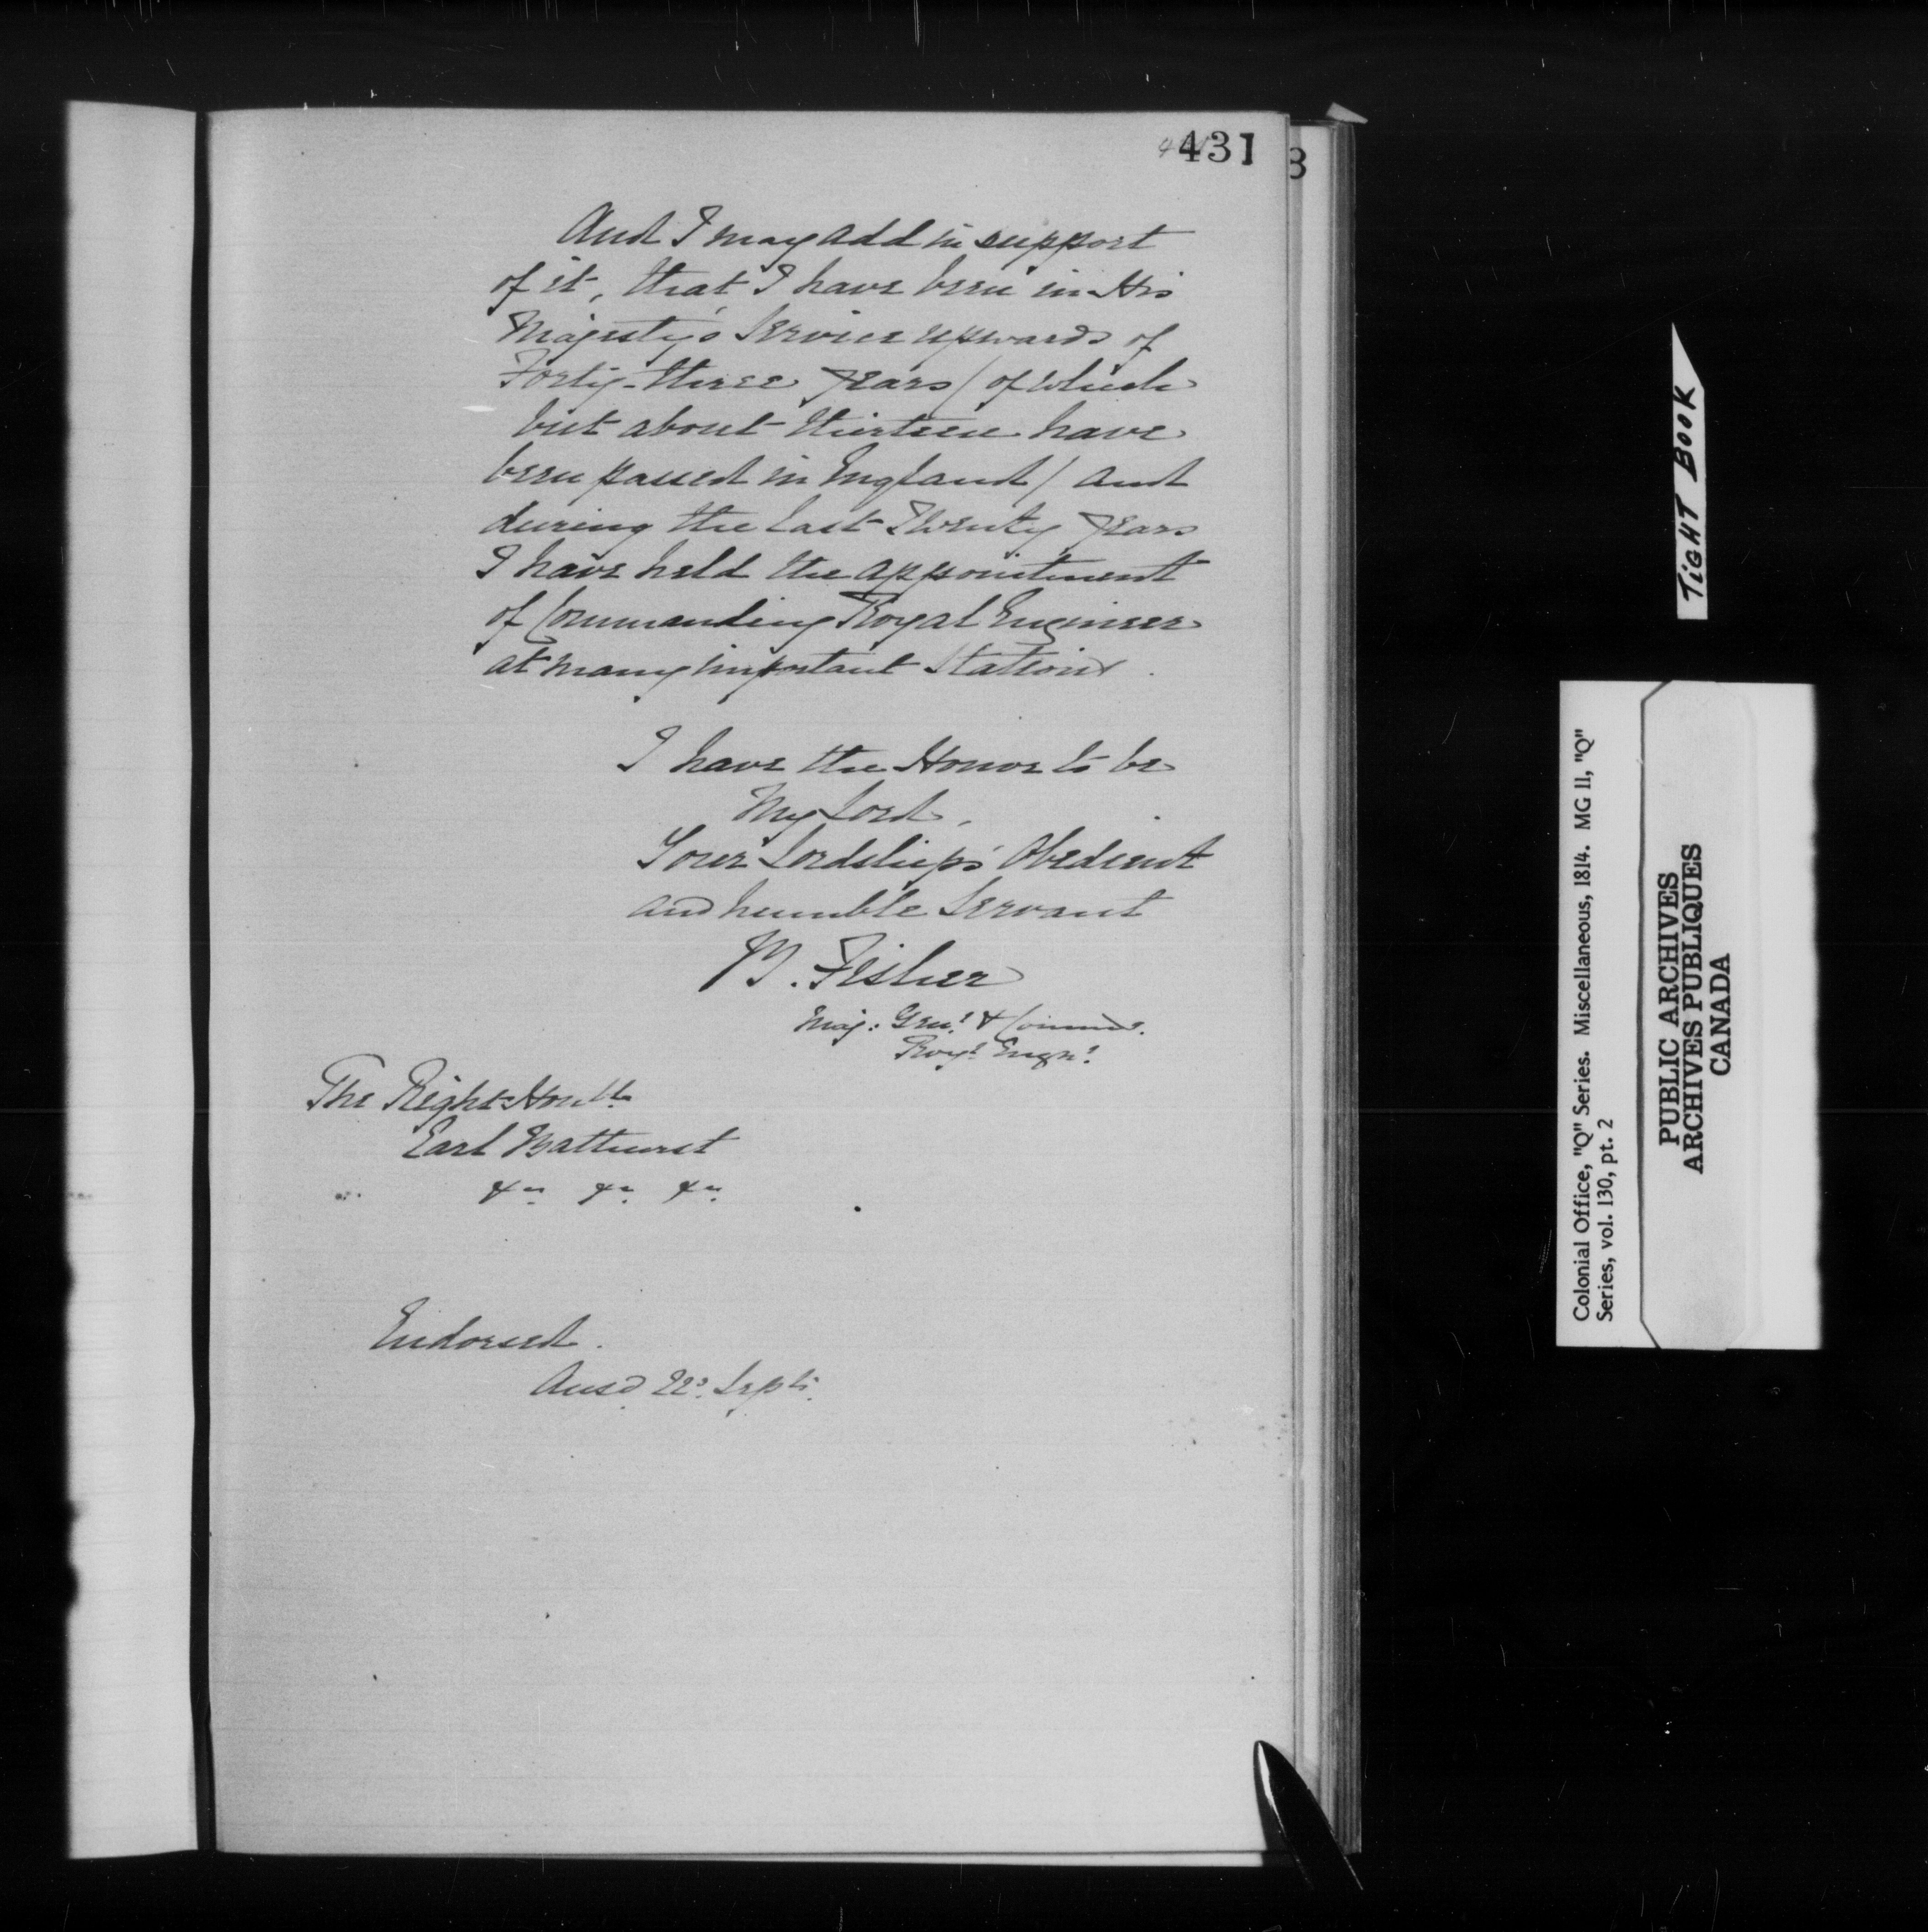 431
8
And I may add in support
of it, that I have been in His
Majesty's Service upwards of
Forty-three years (of which
but about thirteen have
been passed in England) and
during the last Twenty years
I have held the appointment
of Commanding Royal Engineer
at many important Stations.
I have the Honor to be
My Lord,
Your Lordship's Obedient
and humble Servant
B. Fisher
Maj: Genl & Comm.
Royl Engr.
The Right Honble
Earl Bathurst
&c &c &c
Endorsed.
Ansd 22d Septr.
TIGHT BOOK
Colonial Office, "Q" Series. Miscellaneous, 1814. MG 11, "Q"
Series, vol. 130, pt. 2
PUBLIC ARCHIVES
ARCHIVES PUBLIQUES
CANADA